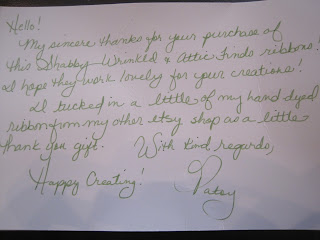 Hello!
My sincere thanks for your purchase of
this Shabby Wrinkled & Attic Finds ribbons!
I hope they work lovely for your creations!
I tucked in a little of my hand dyed
ribbon from my other etsy shop as a little
thank you gift. With kind regards,
Happy Creating! Patsy